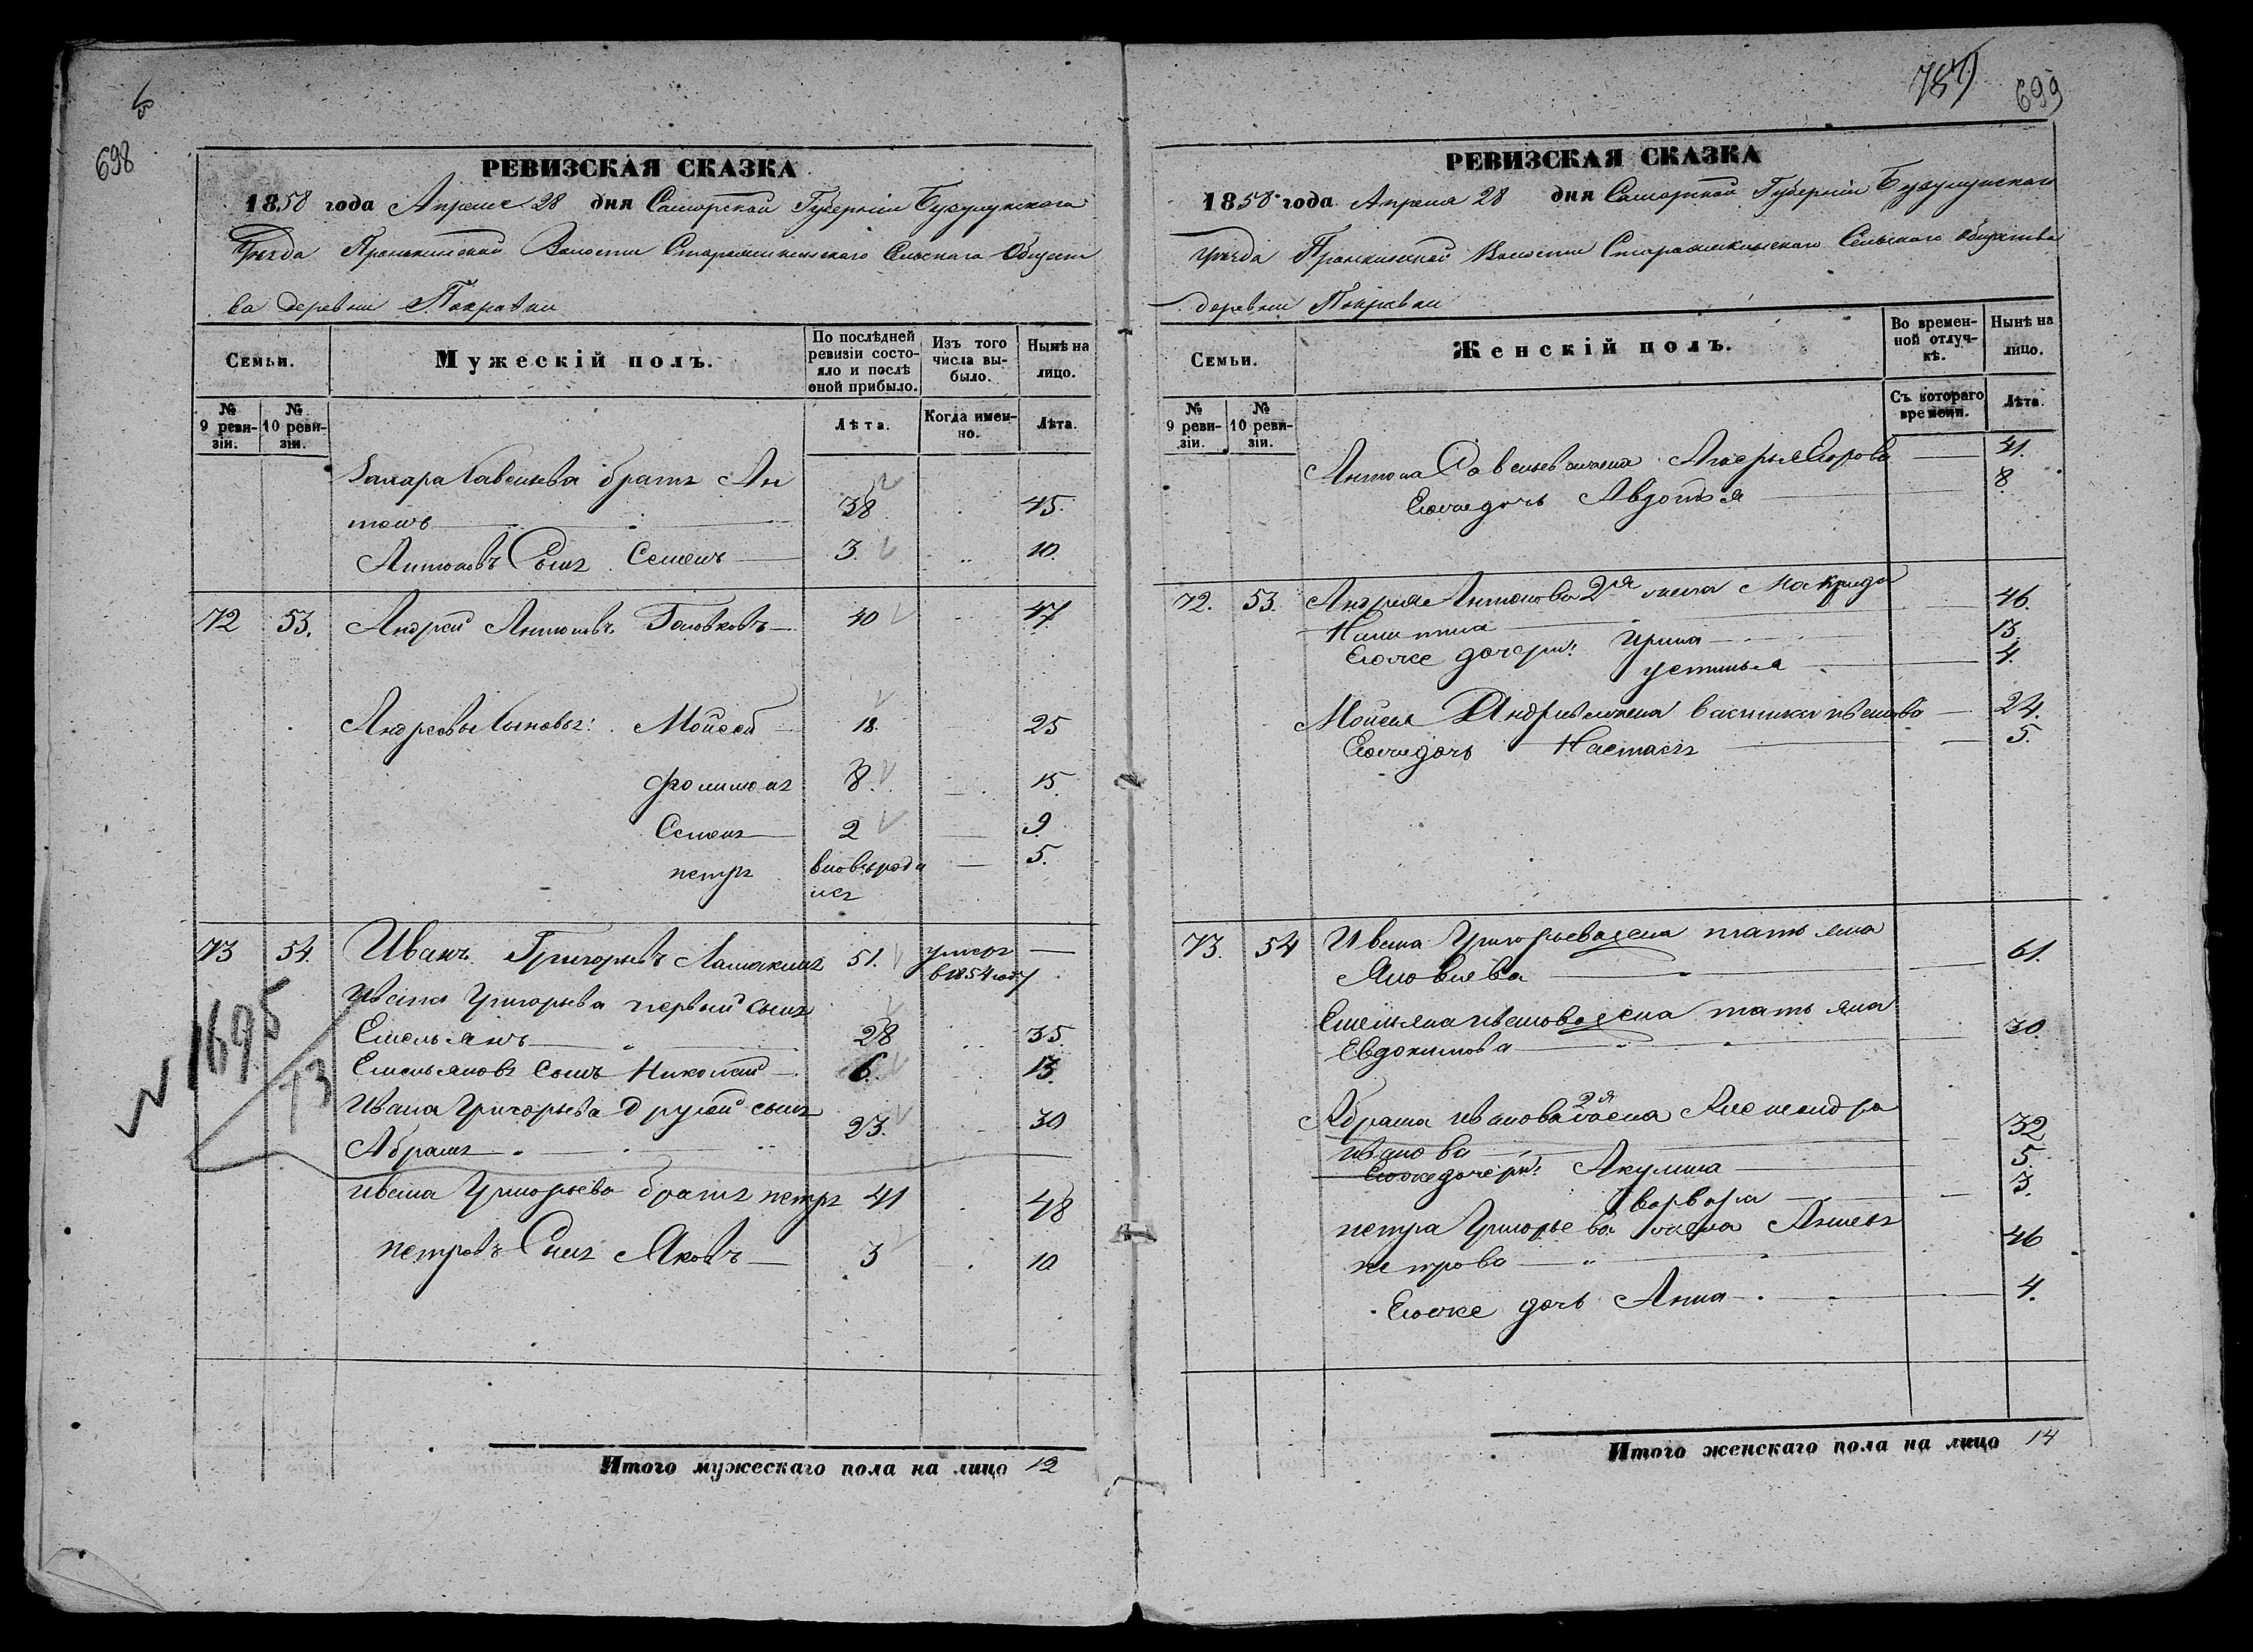 698
РЕВИЗСКАЯ СКАЗКА
1858 года Апреля 28 дня Самарской Губернiи Бузулукского
Уѣзда Пронькинской Волости Сельского Общест
ва деревни Покравки
Семьи.
Мужескiй полъ.
По послѣдней ревизiи состояло и послѣ оной прибыло.
Изъ того числа выбыло.
Нынѣ на лицо.
№ 9 ревизiи.
№ 10 ревизiи.
Лѣта.
Когда именно.
Лѣта.
Захара Савельева братъ Ан
тонъ 38 45.
Антоновъ Сынъ Семенъ 3. 10.
72 53. Андрей Антоновъ Головковъ 40 47.
Андреевы Сыновья: Мойсей 18. 25
Филимонъ 8. 15.
Семенъ 2 9.
петръ вновь роди 5.
лсъ
73 54. Иванъ Григорьевъ 51. умеръ —
в 1854 году
Ивана Григорьева первый сынъ
Емельянъ 28 35.
Емельяновъ Сынъ Николай 6. 13.
Ивана Григорьева другой сынъ
Абрамъ 23. 30
ивана Григорьева братъ петръ 41 48
петровъ Сынъ Яковъ 3 10
№ 1695
73
Итого мужескаго пола на лицо 12
787
699
РЕВИЗСКАЯ СКАЗКА
1858 года Апреля 28 дня Самарской Губернiи Бузулукскаго
Уѣзда Пронкинской Волости Сельского Общества
деревни Покравки
Семьи.
Женскiй полъ.
Во временной отлучкѣ.
Нынѣ на лицо.
№ 9 ревизiи.
№ 10 ревизiи.
Съ котораго времени.
Лѣта.
Антона Савельева жена Егорова 41.
Егоже дочь Авдотья 8.
72. 53. Андрея Антонова 2я жена Макрида
Никитина 46.
Егоже дочери: Ирина 13.
устинья 4.
Мойсея Андреева жена василиса иванова 24.
Егоже дочь Настасья 5.
73. 54 Ивана Григорьева жена татьяна
Яковлева 61.
Емельяна иванова жена татьяна
Евдокимова 30.
Абрама иванова 2я жена Александра
иванова 32
Егоже дочери: Акулина 5.
варвара 3.
петра Григорьева жена
петрова 46
Егоже дочь Анна 4.
Итого женскаго пола на лицо 14